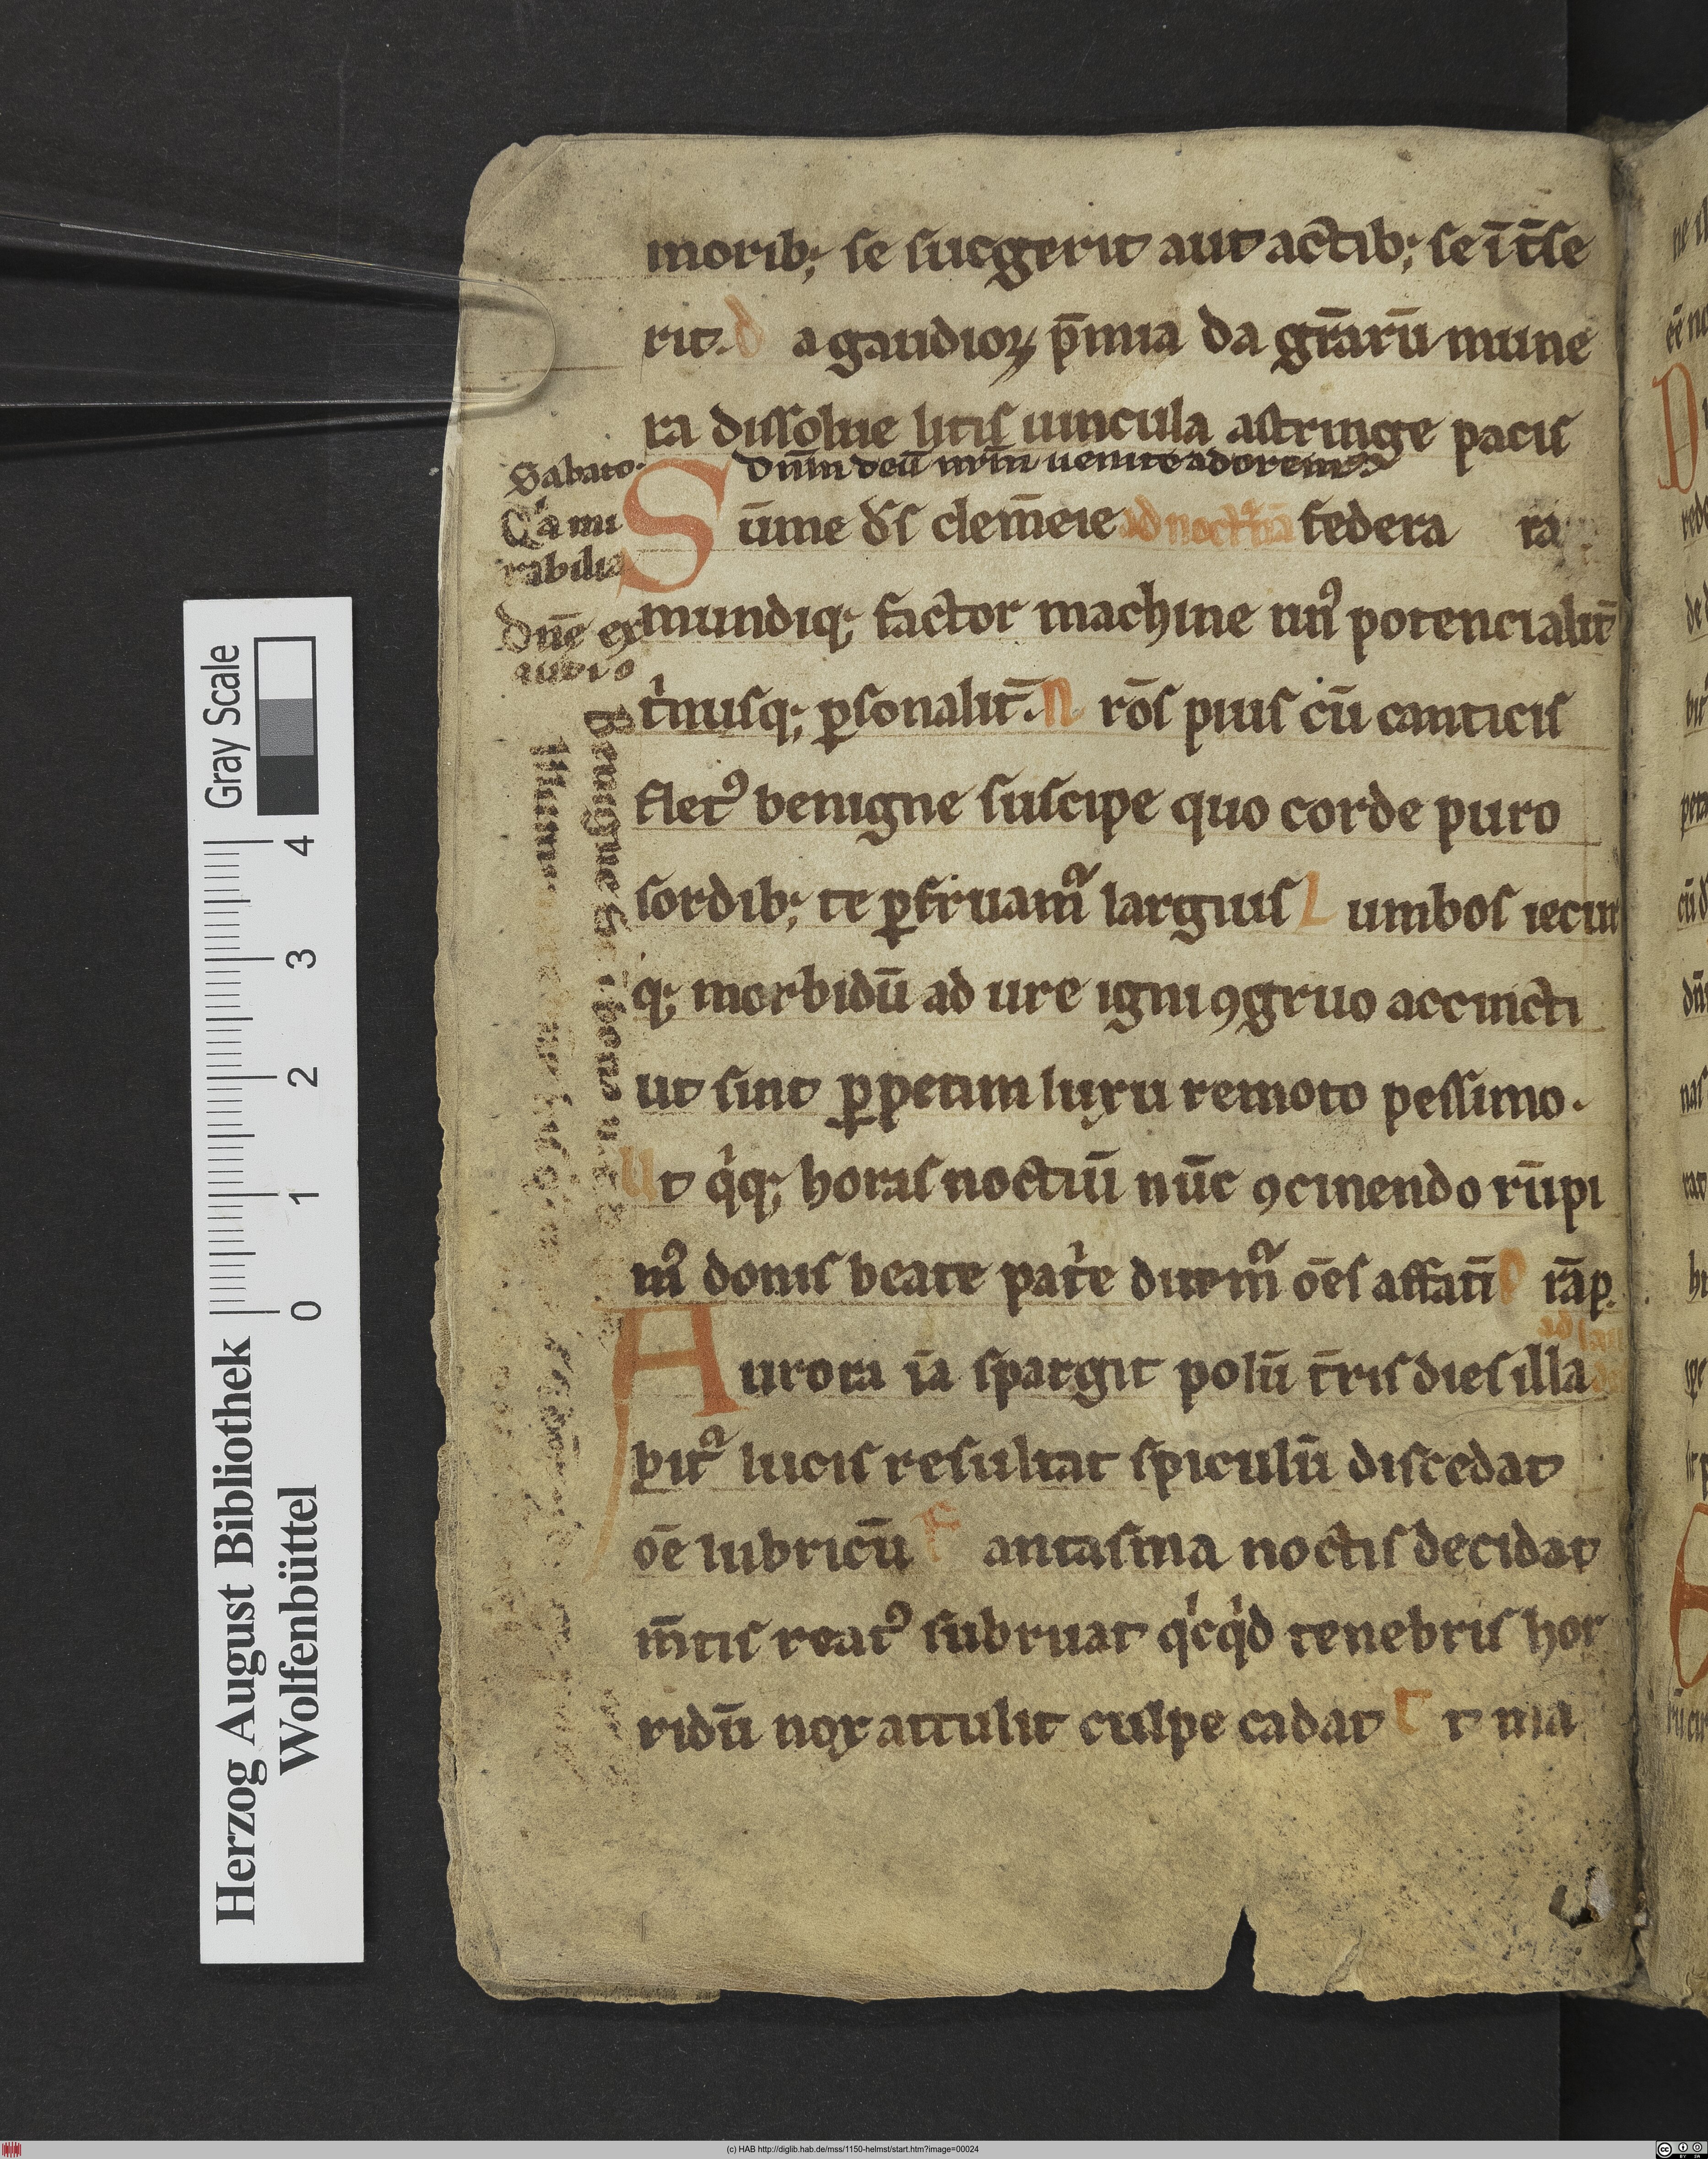 morib; se sucgerit aut actib; se ī t̄se
rit. d a gaudioꝝ p̄mia da gr̄arū mune
ra dissolue litis uincula astringe pacis
Dn̄m deū nr̄m uenite adorem
Sabato
S ūme d̄s clem̄cie ad noct federa ra
Ca mi
rabilia
mundiq; factor machine unꝰ potencialit̄
Dn̄e ex
audi
tͥnusq; ꝑsonalit̄. N r̄os pius cū canticis
fletꝰ benigne suscipe quo corde puro
sordib; te ꝑfruamᷣ largius L umbos iecur
q; morbidū ad ure igni ꝯgruo accincti
ut sint ꝑpetim luxu remoto pessimo.
Ut qͥq; horas noctiū nūc ꝯcinendo rūpi
mꝰ donis beate patͥe ditemᷣ ōes affati P̄ r̄a p.
A urora ia̅ spargit polū t̄ris dies illa
bitᷣ lucis resultat spiculū discedat
oē lubricū f antasma noctis decidat
m̄tis reatꝰ subruat qͥcqͥd tenebris hor
ridū nox attulit culpe cadat E t ma
Benigne
Herzog August Bibliothek
Wolfenbüttel
0 1 2 3 4
Gray Scale
(c) HAB http://diglib.hab.de/mss/1150-helmst/start.htm?image=00024